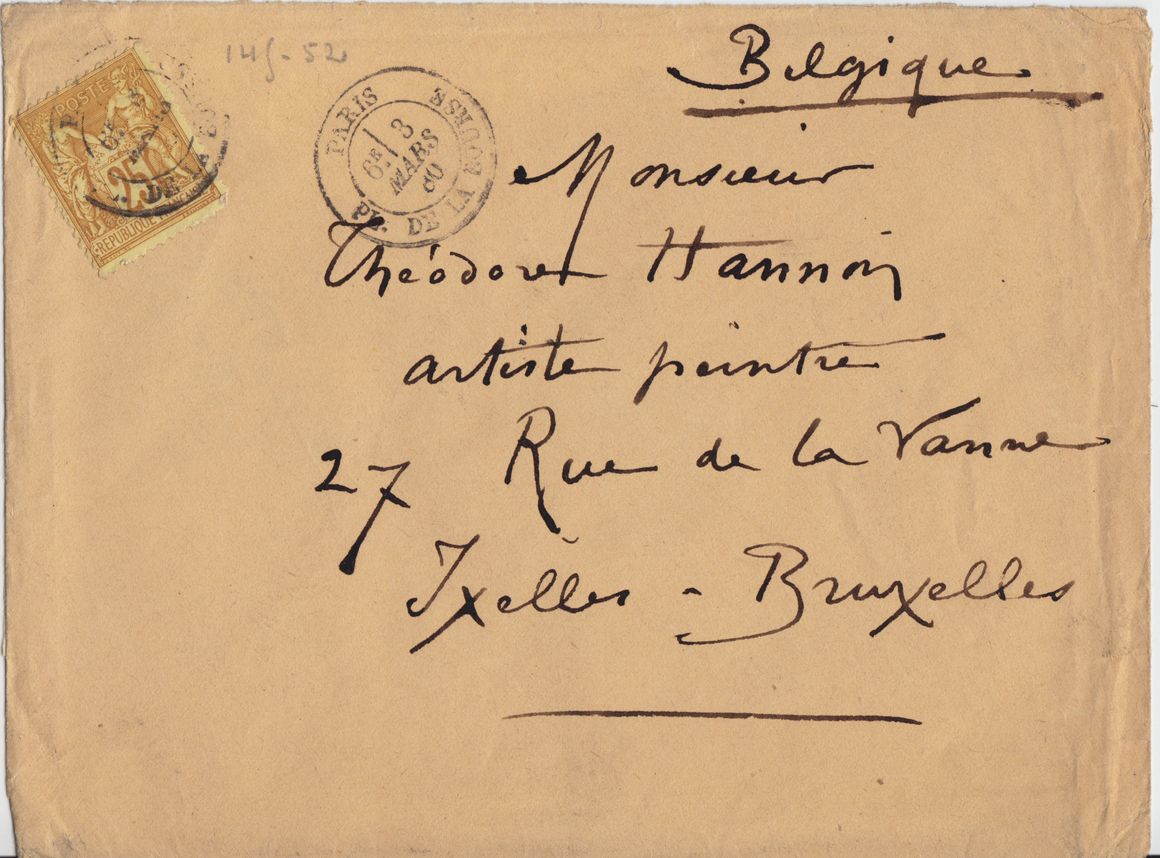 145-52
Belgique
PARIS
6E 3
MARS
80
PL. DE LA BOURSE
POSTE
25
REPUBLIQUE
DE LA
Monsieur
Théodore Hannon
artiste peintre
27 Rue de la Vanne
Ixèlles - Bruxelles